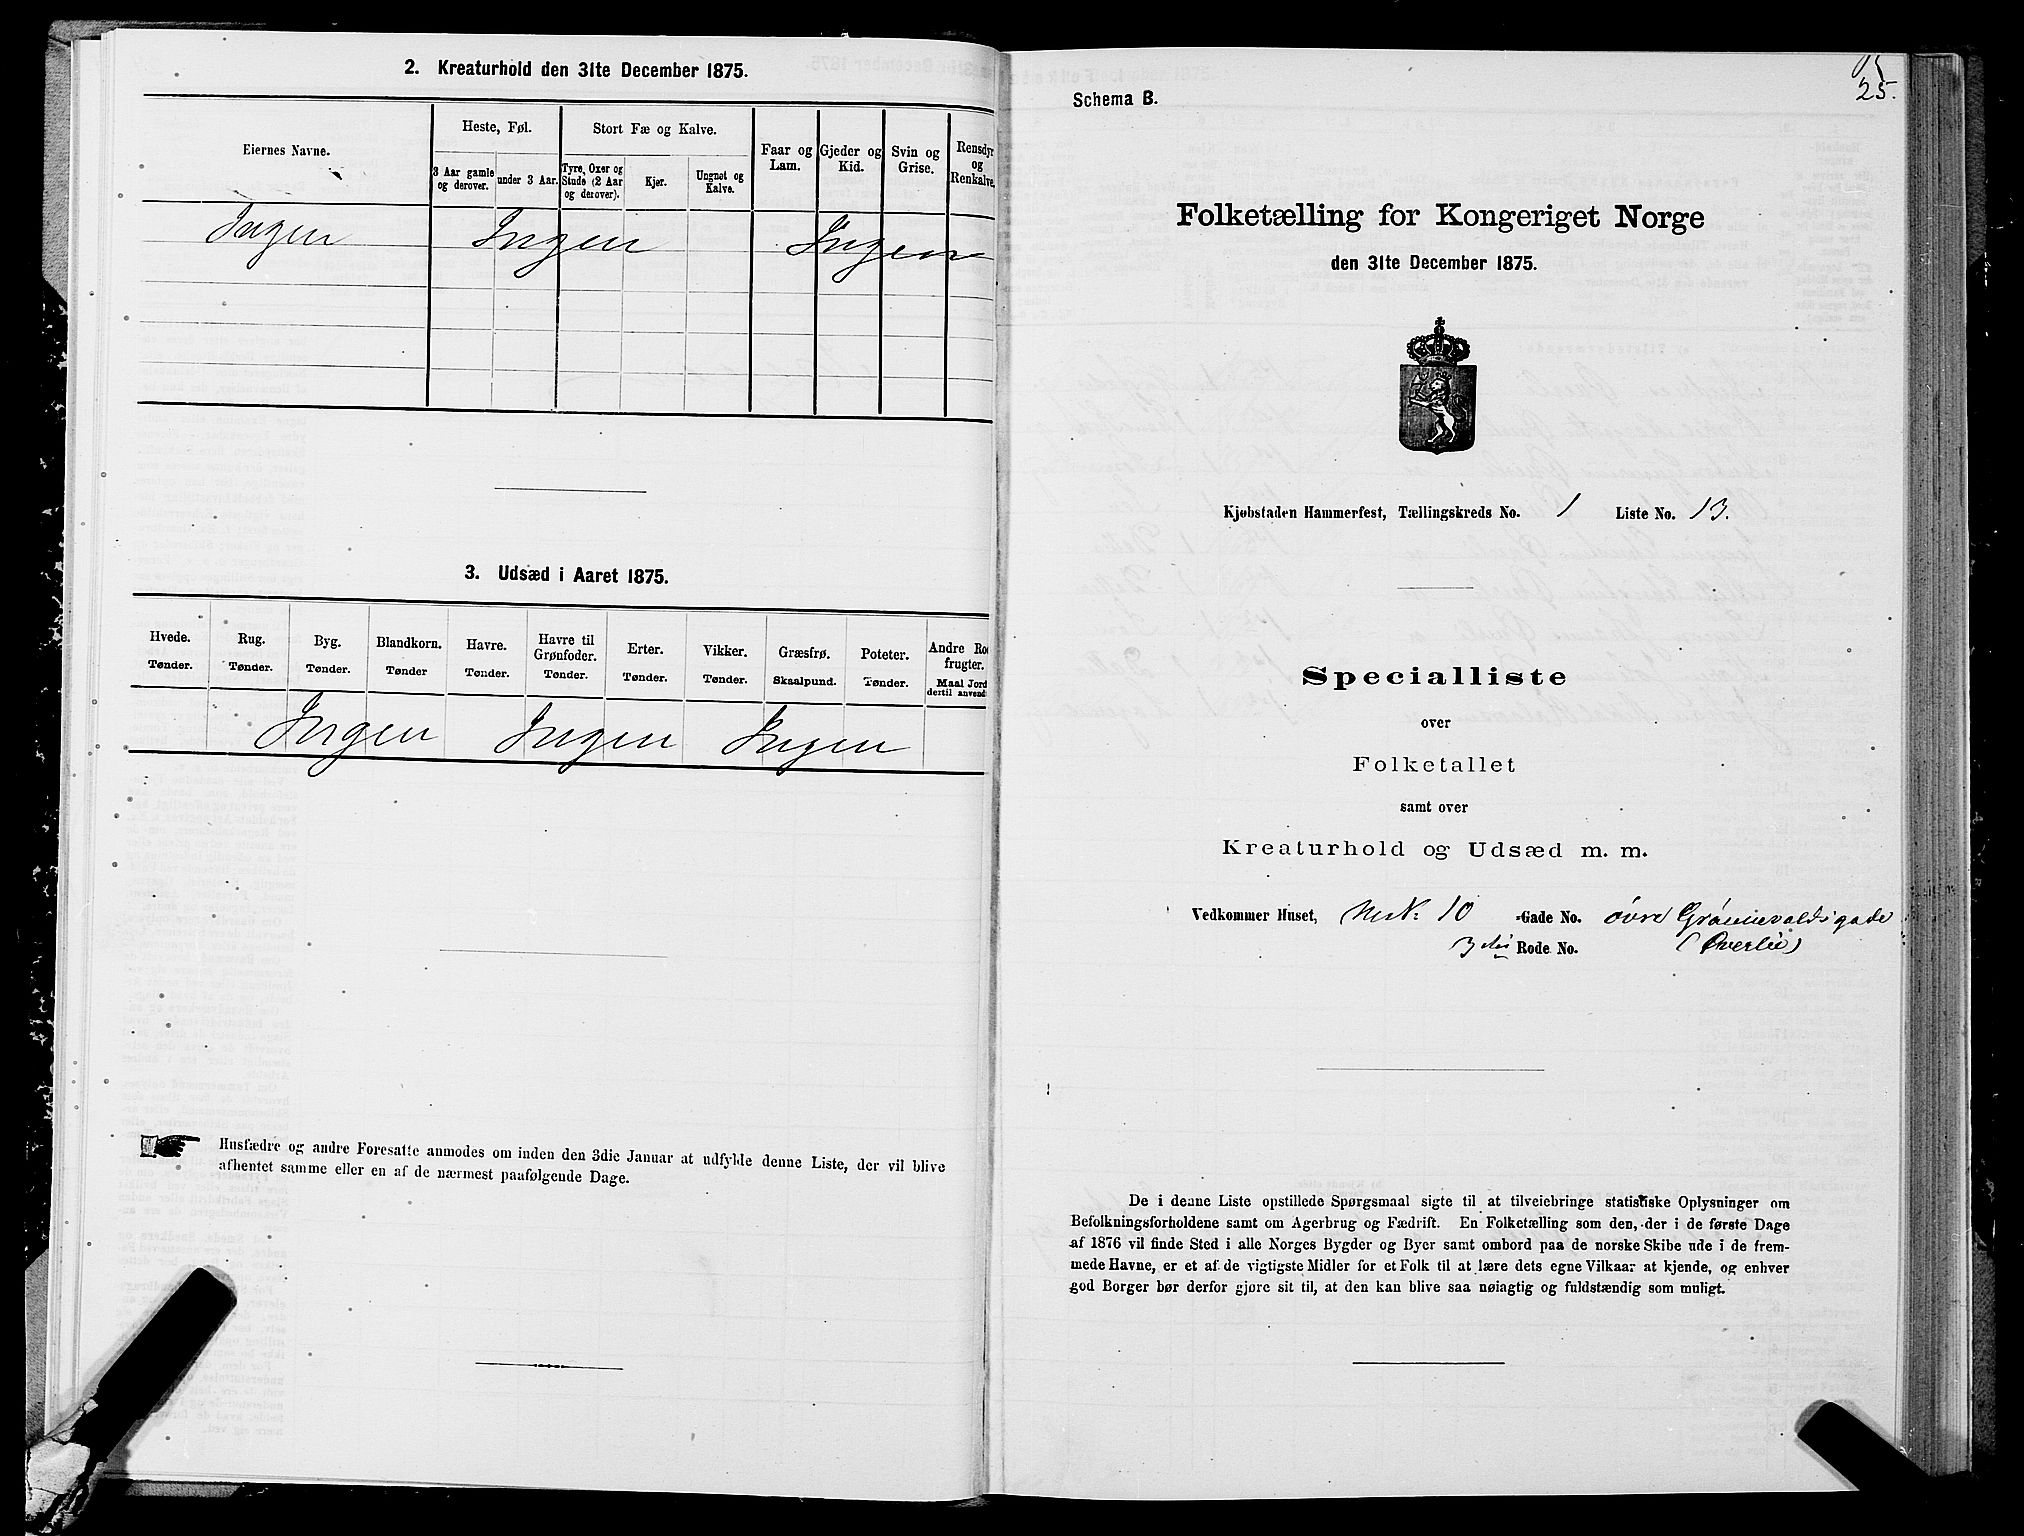 2. Kreaturhold den 31te December 1875.
Eiernes Navne.
Heste, Føl.
Stort Fæ og Kalve.
Faar og Lam.
Gjeder og Kid.
Svin og Grise.
Rensdyr og Renkalve.
3 Aar gamle og derover.
under 3 Aar.
Tyre, Oxer og Stude (2 Aar og derover).
Kjør.
Ungnøt og Kalve.
Ingen Ingen Ingen
3. Udsæd i Aaret 1875.
Hvede. Tønder.
Rug. Tønder.
Byg. Tønder.
Blandkorn. Tønder
Havre. Tønder.
Havre til Grønfoder. Tønder.
Erter. Tønder.
Vikker. Tønder.
Græsfrø. Skaalpund.
Poteter. Tønder.
Andre Ro frugter. Maal Jord dertil anvend
Ingen Ingen Ingen
Husfædre og andre Foresatte anmodes om inden den 3die Januar at udfylde denne Liste, der vil blive
afhentet samme eller en af de nærmest paafølgende Dage.
25.
Schema B.
Folketælling for Kongeriget Norge
den 31te December 1875.
Kjøbstaden Hammerfest, Tællingskreds No. 1 Liste No. 13.
Specialliste
over
Folketallet
samt over
Kreaturhold og Udsæd m. m.
Vedkommer Huset, Matr. 10 -Gade No. øvre Grønnevoldsgade
3die Rode No. (Øverlie)
De i denne Liste opstillede Spørgsmaal sigte til at tilveiebringe statistiske Oplysninger om
Befolkningsforholdene samt om Agerbrug og Fædrift. En Folketælling som den, der i de første Dage
af 1876 vil finde Sted i alle Norges Bygder og Byer samt ombord paa de norske Skibe ude i de frem-
mede Havne, er et af de vigtigste Midler for et Folk til at lære dets egne Vilkaar at kjende, og enhver
god Borger bør derfor gjøre sit til, at den kan blive saa nøiagtig og fuldstændig som muligt.